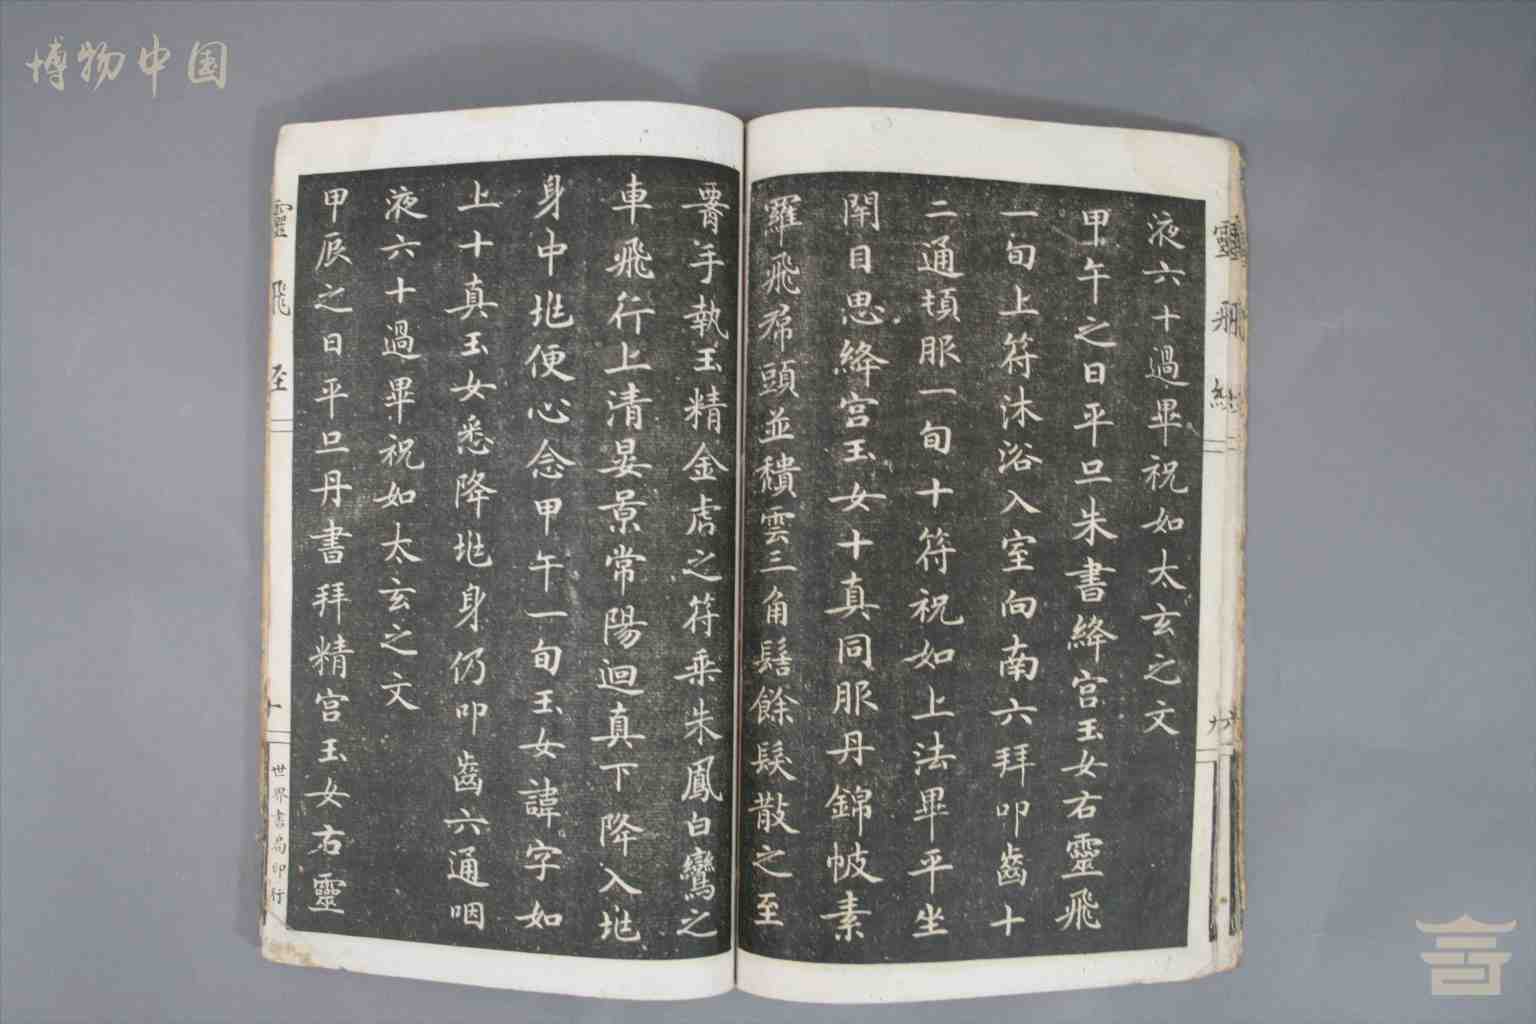 博物中国
液六十過畢祝如太玄之文
甲午之日平旦朱書絳宫玉女右靈飛
一旬上符沐浴入室向南六拜叩齒十
二通頓服一旬十符祝如上法畢平坐
閉目思絳宫玉女十真同服丹錦帔素
羅飛帬頭並穨雲三角髻餘髮散之至
署手執玉精金虎之符乘朱鳳白鸞之
車飛行上清晏景常陽迴真下降入𡉈
身中𡉈便心念甲午一旬玉女諱字如
上十真玉女悉降𡉈身仍叩齒六通咽
液六十過畢祝如太玄之文
甲辰之日平旦丹書拜精宫玉女右靈
靈飛
世界書局印行